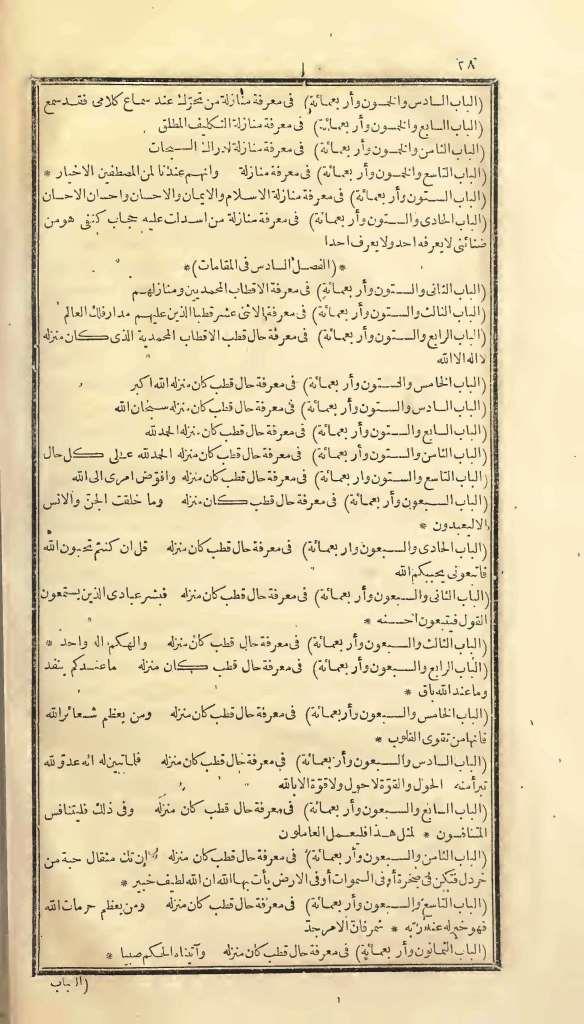 ٢٨
(الباب السادس والخمسون وأربعمائة) فى معرفة منازلة من تحرّك عند سماع كلامى فقد سمع
(الباب السابع والخمسون وأربعمائة) فى معرفة منازلة التكليف المطلق
(الباب الثامن والخمسون وأربعمائة) فى معرفة منازلة ادراك السبحات
(الباب التاسع والخمسون وأربعمائة) فى معرفة منازلة وانهم عندنا لمن المصطفين الاخيار *
(الباب الستون وأربعمائة) فى معرفة منازلة الاسلام والايمان والاحسان واحسان الاحسان
(الباب الحادى والستون وأربعمائة) فى معرفة منازلة من اسدلت عليه حجاب كنفى هو من
ضنائنى لا يعرفه احد ولا يعرف احدا
*(الفصل السادس فى المقامات)*
(الباب الثانى والستون وأربعمائة) فى معرفة الاقطاب المحمديين ومنازلهم
(الباب الثالث والستون وأربعمائة) فى معرفة الاثنى عشر قطبا الذين عليهم مدار فلك العالم
(الباب الرابع والستون وأربعمائة) فى معرفة حال قطب الاقطاب المحمدية الذى كان منزله
لا اله الا الله
(الباب الخامس والستون وأربعمائة) فى معرفة حال قطب كان منزله الله اكبر
(الباب السادس والستون وأربعمائة) فى معرفة حال قطب كان منزله سبحان الله
(الباب السابع والستون وأربعمائة) فى معرفة حال قطب كان منزله الحمد لله
(الباب الثامن والستون وأربعمائة) فى معرفة حال قطب كان منزله الحمد لله على كل حال
(الباب التاسع والستون واربعمائة) فى معرفة حال قطب كان منزله وافوّض امرى الى الله
(الباب السبعون وأربعمائة) فى معرفة حال قطب كان منزله وما خلقت الجنّ والانس
الا ليعبدون *
(الباب الحادى والسبعون واربعمائة) فى معرفة حال قطب كان منزله قل ان كنتم تحبون الله
فاتبعونى يحببكم الله
(الباب الثانى والسبعون وأربعمائة) فى معرفة حال قطب كان منزله فبشر عبادى الذين يستمعون
القول فيتبعون احسنه *
(الباب الثالث والسبعون وأربعمائة) فى معرفة حال قطب كان منزله والهكم اله واحد *
(الباب الرابع والسبعون وأربعمائة) فى معرفة حال قطب كان منزله ما عندكم ينفد
وما عند الله باق *
(الباب الخامس والسبعون وأربعمائة) فى معرفة حال قطب كان منزله ومن يعظم شعائر الله
فانها من تقوى القلوب *
(الباب السادس والسبعون وأربعمائة) فى معرفة حال قطب كان منزله فلما تبين له انه عدوّ لله
تبرأ منه الحول والقوّة لا حول ولا قوّة الا بالله
(الباب السابع والسبعون وأربعمائة) فى معرفة حال قطب كان منزله وفى ذلك فليتنافس
المتنافسون * لمثل هذا فليعمل العاملون
(الباب الثامن والسبعون وأربعمائة) فى معرفة حال قطب كان منزله ان تك مثقال حبة من
خردل فتكن فى صخرة أو فى السموات أو فى الارض يأت بها الله ان الله لطيف خبير *
(الباب التاسع والسبعون وأربعمائة) فى معرفة حال قطب كان منزله ومن يعظم حرمات الله
فهو خير له عند ربه * شمر فان الامر جدّ
(الباب الثمانون وأربعمائة) فى معرفة حال قطب كان منزله وآتيناه الحكم صبيا *
(الباب